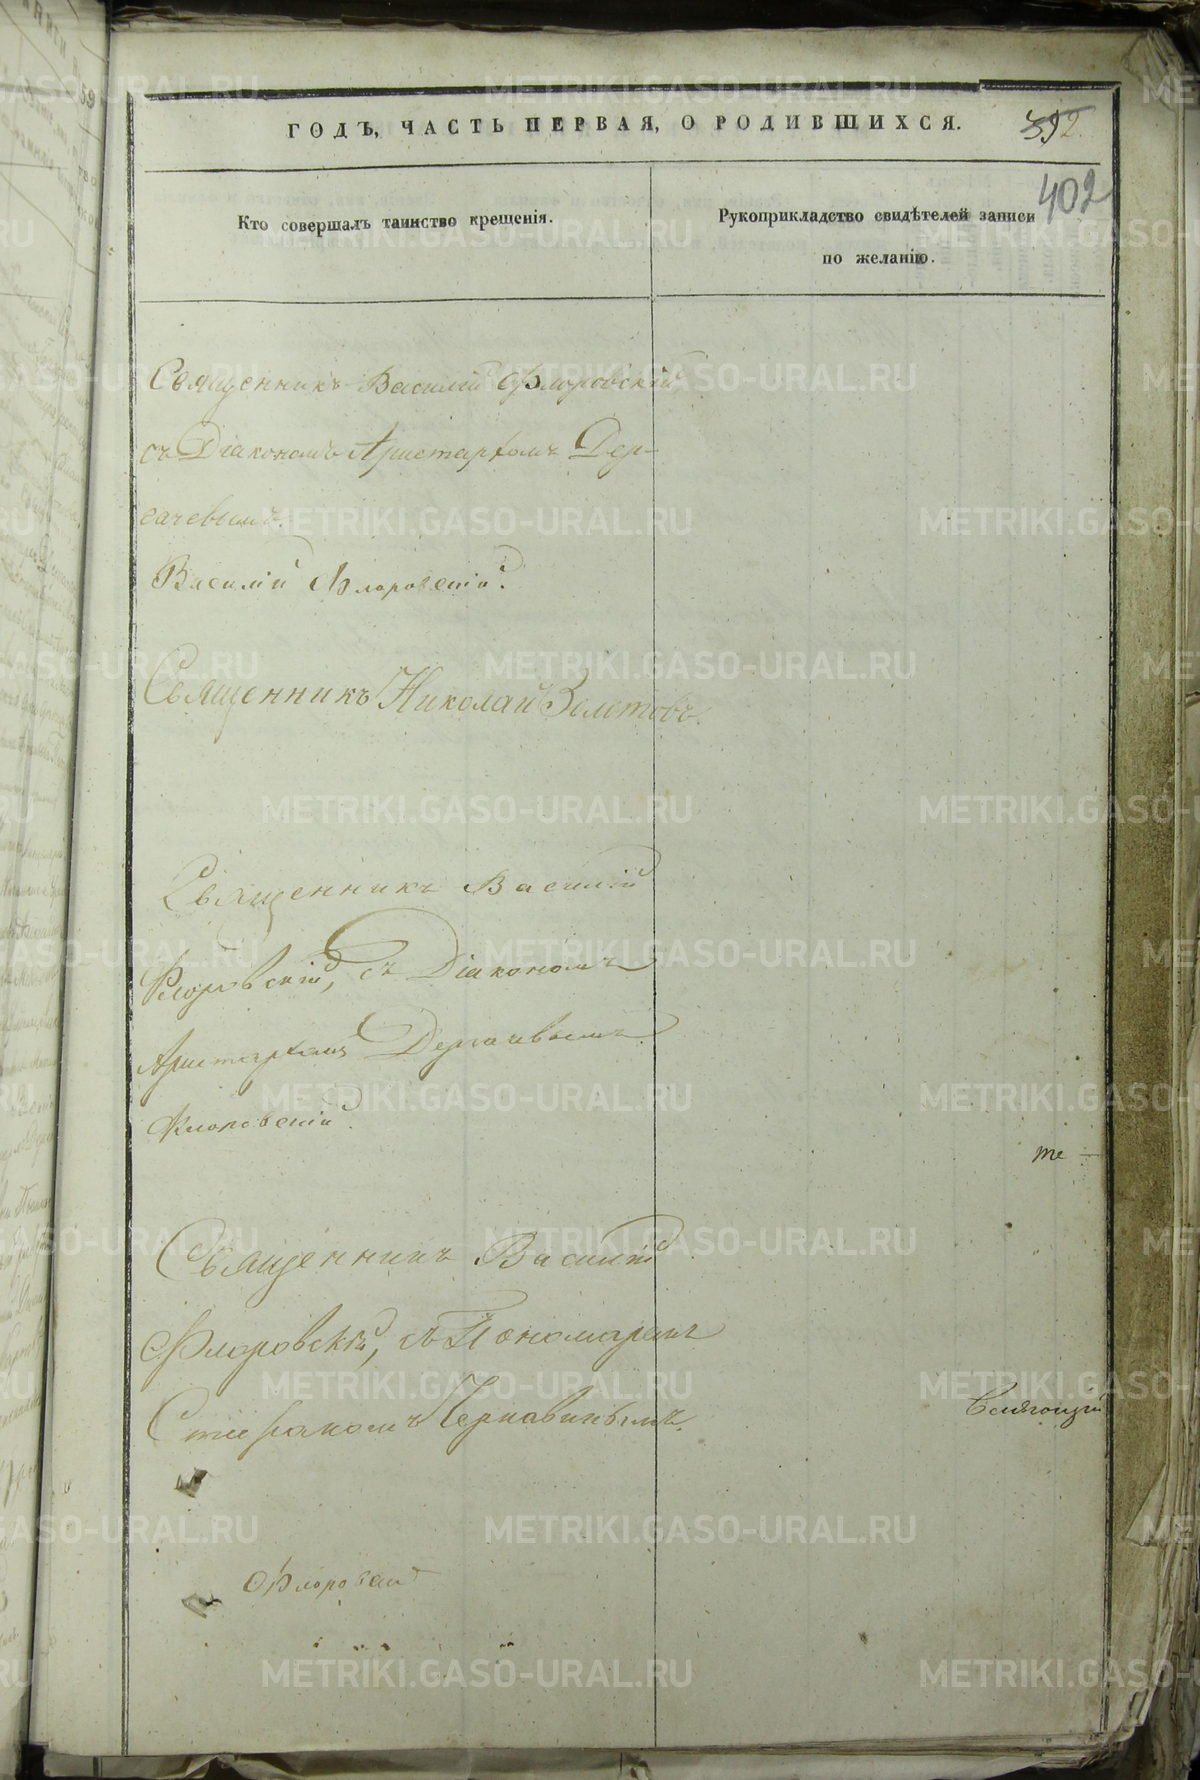 ГОДЪ, ЧАСТЬ ПЕРВАЯ, О РОДИВШИХСЯ.
392.
402
Кто совершалъ таинство крещенія.
Рукоприкладство свидѣтелей записи
по желанію.
Священникъ Василій Флоровскій
съ Діакономъ Аристархомъ Дер-
гачевымъ.
Василій Флоровскій.
Священникъ Николай Золотовъ.
Священникъ Василій
Флоровскій, съ Діакономъ
Аристархомъ Дергачевымъ.
Флоровскій.
те
Священникъ Василій
Флоровскій, съ Пономаремъ
Стефаномъ Чернавинымъ.
Флоровскій
METRIKI.GASO-URAL.RU